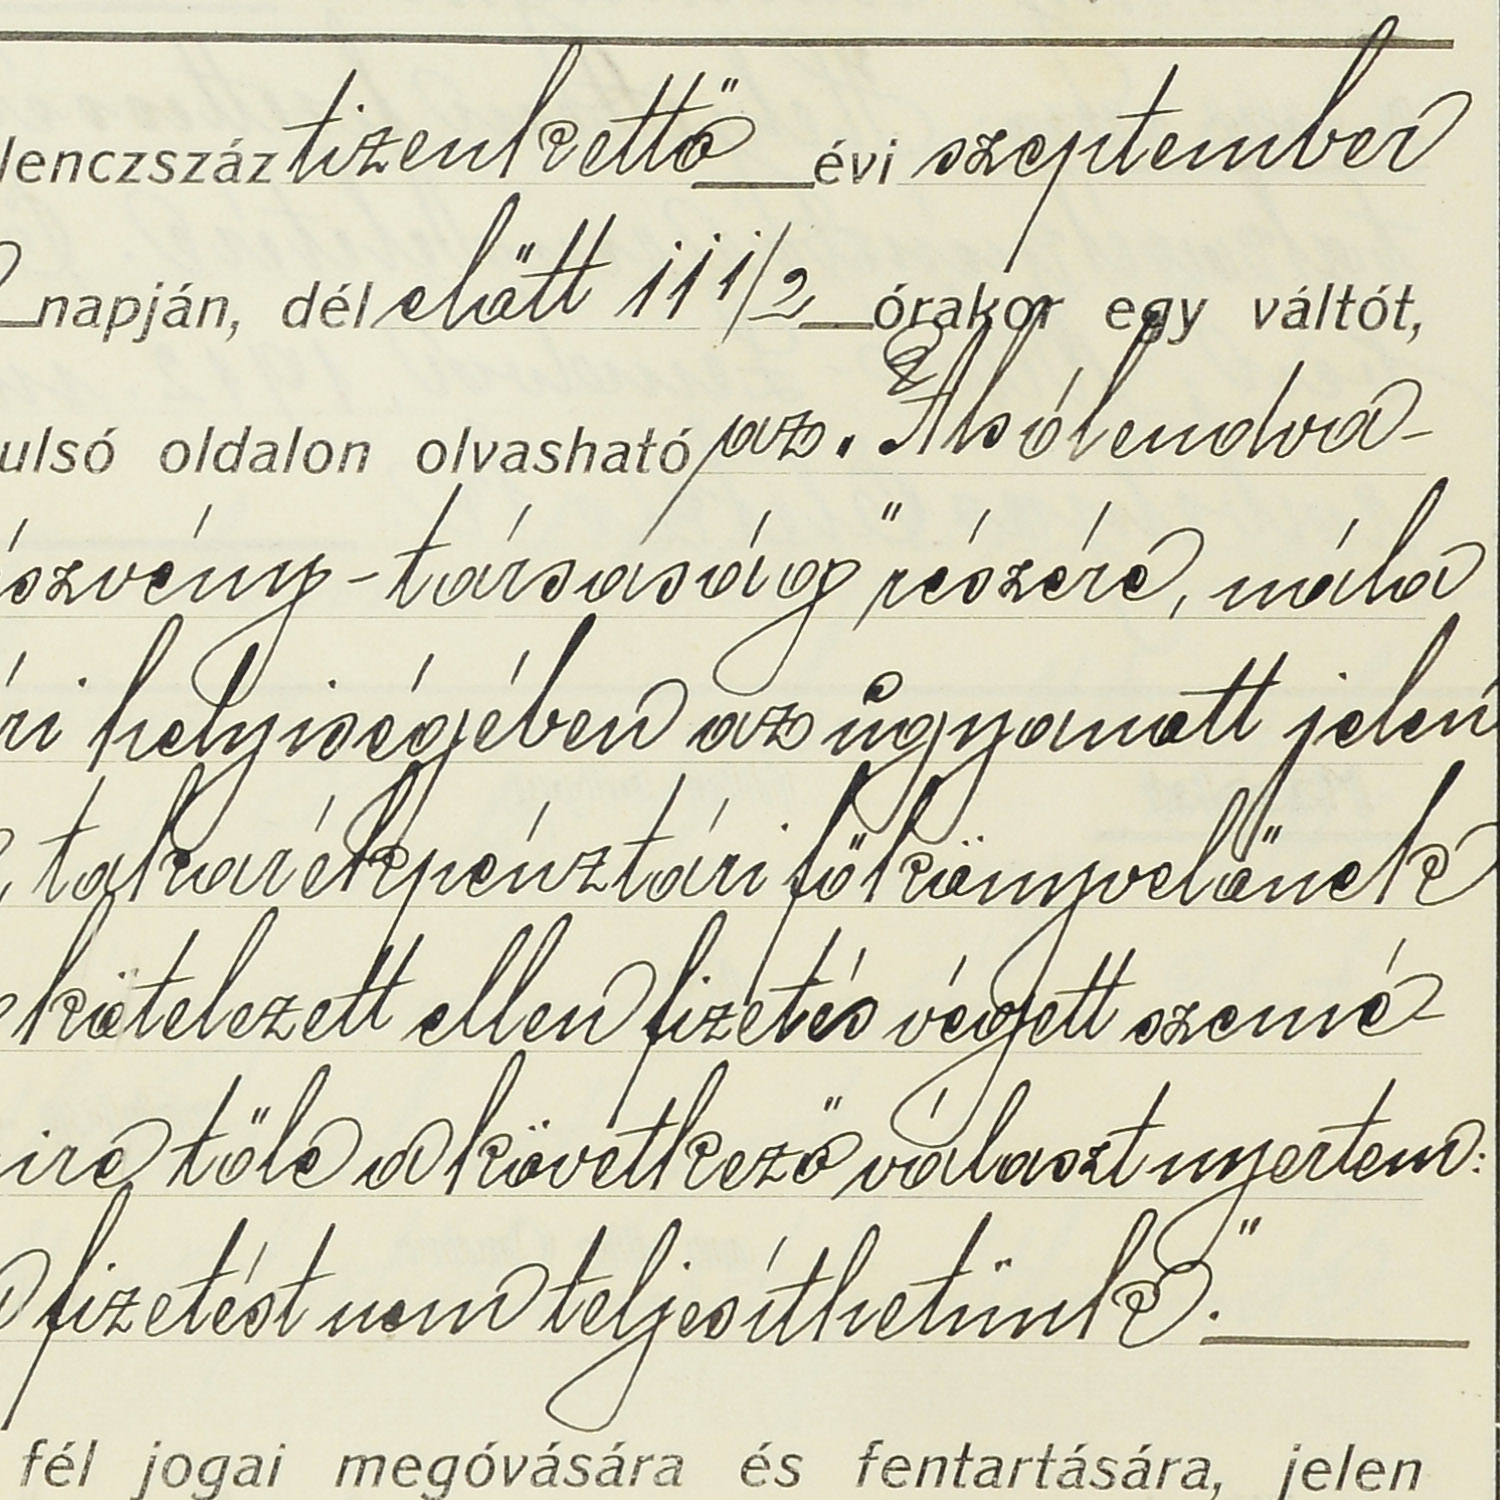 lenczszáz tizenkettő évi szeptember
napján, délelőtt 11 1/2 órakor egy váltót,
ulsó oldalon olvasható az „Alsólendva-
észvény-társaság" részére, nála
ri helyiségében az ugyanott jelen
, takarékpénztári főkönyvelőnek
kötelezett ellen fizetés végett szemé-
ire tőle a következő választ nyertem:
fizetést nem teljesíthetünk."
fél jogai megóvására és fentartására, jelen